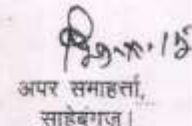 अपर समाहर्त्ता,
साहेबगंज।